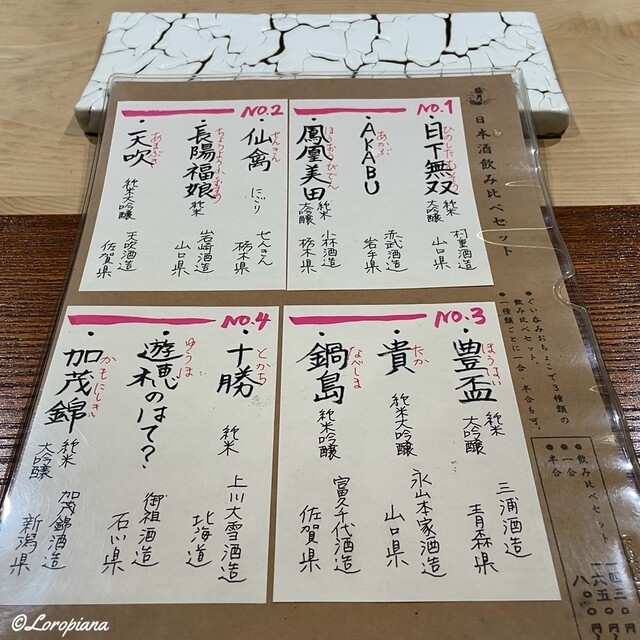 日本酒飲み比べセット
●ぐい呑みおちょこで3種類の
飲み比べセット。
●一種類ごとに一合、半合も可。
●飲み比べセット 一四三〇円
●一合 一六五〇円
●半合 八〇〇円
NO.1
・日下無双 純米大吟醸 村重酒造 山口県
・AKABU あかぶ 赤武酒造 岩手県
・鳳凰美田 ほうおうびでん 純米大吟醸 小林酒造 栃木県
NO.2
・仙禽 せんきん にごり せんきん 栃木県
・長陽福娘 ちょうようふくむすめ 純米 岩崎酒造 山口県
・天吹 あまぶき 純米大吟醸 天吹酒造 佐賀県
NO.3
・豊盃 ほうはい 純米吟醸 三浦酒造 青森県
・貴 たか 純米大吟醸 永山本家酒造 山口県
・鍋島 なべしま 純米吟醸 富久千代酒造 佐賀県
NO.4
・十勝 とかち 純米 上川大雪酒造 北海道
・遊穂のはて? ゆうほ 御祖酒造 石川県
・加茂錦 かもにしき 純米大吟醸 加茂錦酒造 新潟県
©Loropiana